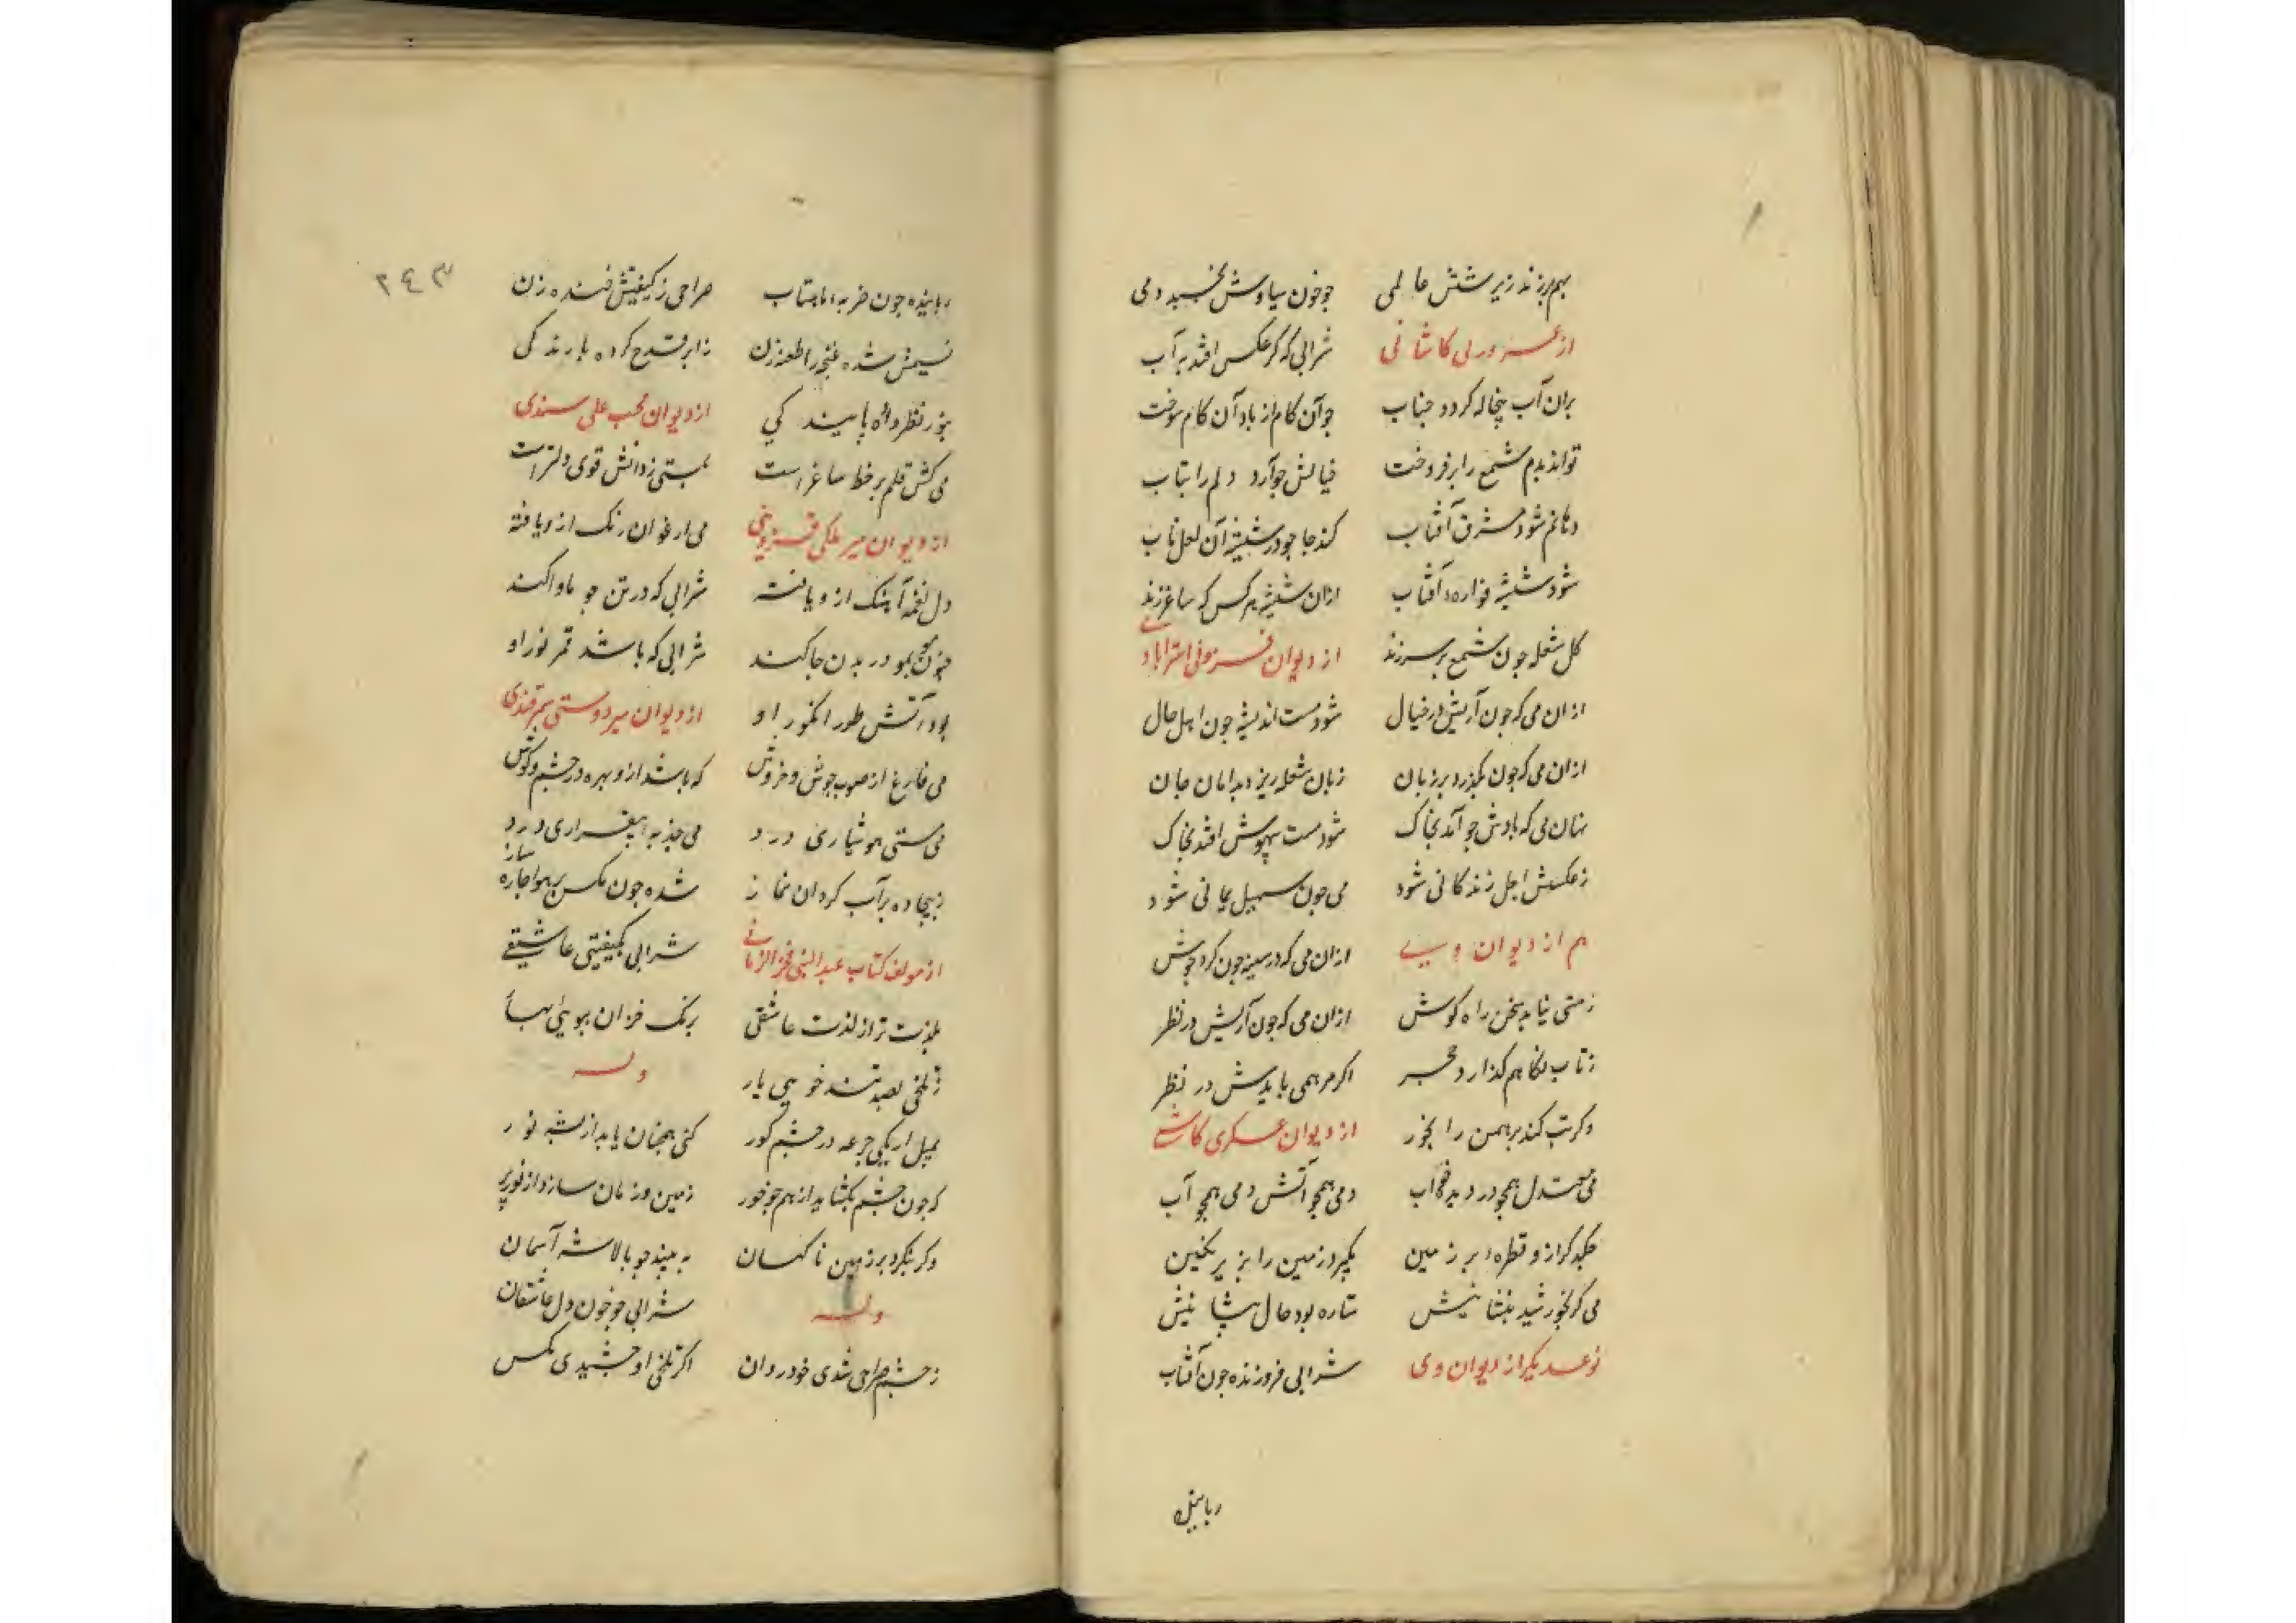 بهم برزند زیر شش عالمی جو خون سیاوش نخسبد دمی
از غروری کاشانی شرابی که کر عکس افتد بآب
بران آب پنجاله کردد حباب جو آن کام از یاد آن کام سوخت
تواند بدم شمع را برفروخت خیالش جو آرد دلم را بتاب
دهانم شود مشرق آفتاب کند جا جو در شیشه آن لعل ناب
شود شیشه فواره آفتاب ازان شیشه هر کس که ساغر زند
کل شعله جون شمع بر سر زند از دیوان فزونی استرابادی
ازان می که جون آریش در خیال شود مست اندیشه جون اهل حال
ازان می که جون بکذرد بر زبان زبان شعله ریزد بدامان جان
می که بادش جو آمد بخاک شود مست بیهوش افتد بخاک
ز عکسش اجل زندکانی شود می جون سهیل یمانی شود
هم از دیوان ویست ازان می که در سینه جون کرد جوش
ز مستی نیابد سخن راه کوش ازان می که جون آریش در نظر
ز تاب نکاهم کدازد حجر اکر مرهمی بایدش در نظر
وکر تب کند برهمن را بخور از دیوان عسکری کاشی
می معتدل همجو در دیده خواب دمی همجو آتش دمی همجو آب
جکد کر ازو قطره بر زمین بکیرد زمین را بزیر نکین
می کر بخورشید بنشانیش ستاره بود خال پیشانیش
نوعدیکر از دیوان وی شرابی فروزنده جون آفتاب
رباینده
۲۴۳
رباینده جون ماهتاب صراحی ز کیفیتش خنده زن
نسیمش شده غنجه را طعنه زن ز ابر قدح کرده بارندکی
بنور نظر داده پایندکی از دیوان محب علی سندی
می کش قلم بر خط ساغر است بمستی ز دانش قوی دلتر است
از دیوان میر ملکی قزوینی می ارغوان رنک ازو یافته
دل نغمه آهنک ازو یافته شرابی که در تن جو ماوا کند
جنون بمو در بدن جا کند شرابی که باشد قمر نور او
بود آتش طور انکور او از دیوان میر دوستی سمرقندی
می فارغ از عیب جوش و خروش که باشد ازو بهره در چشم و کوش
می مستی هوشیاری درد می جذبه بیقراری درد
ز سجاده بر آب کردان نماز شده جون مکس بر هوا جاره ساز
از مولف کتاب عبدالنبی فخر الزمانی شرابی بکیفیتی عاشقی
بلذت تر از لذت عاشقی برنک خزان ببوی بهار
ز تلخی بصد تند خویی یار وله
بمیل ار یکی جرعه در چشم کور کنی همجنان یابد از نشه نور
که جون چشم بکشاید از هم جو خور زمین و زمان سازد از نور پر
وکر بنکرد بر زمین ناکهان به بیند جو بالا شه آسمان
وله شرابی جو خون دل عاشقان
ز چشم صراحی شدی خود روان اکر تلخی او چشیدی مکس